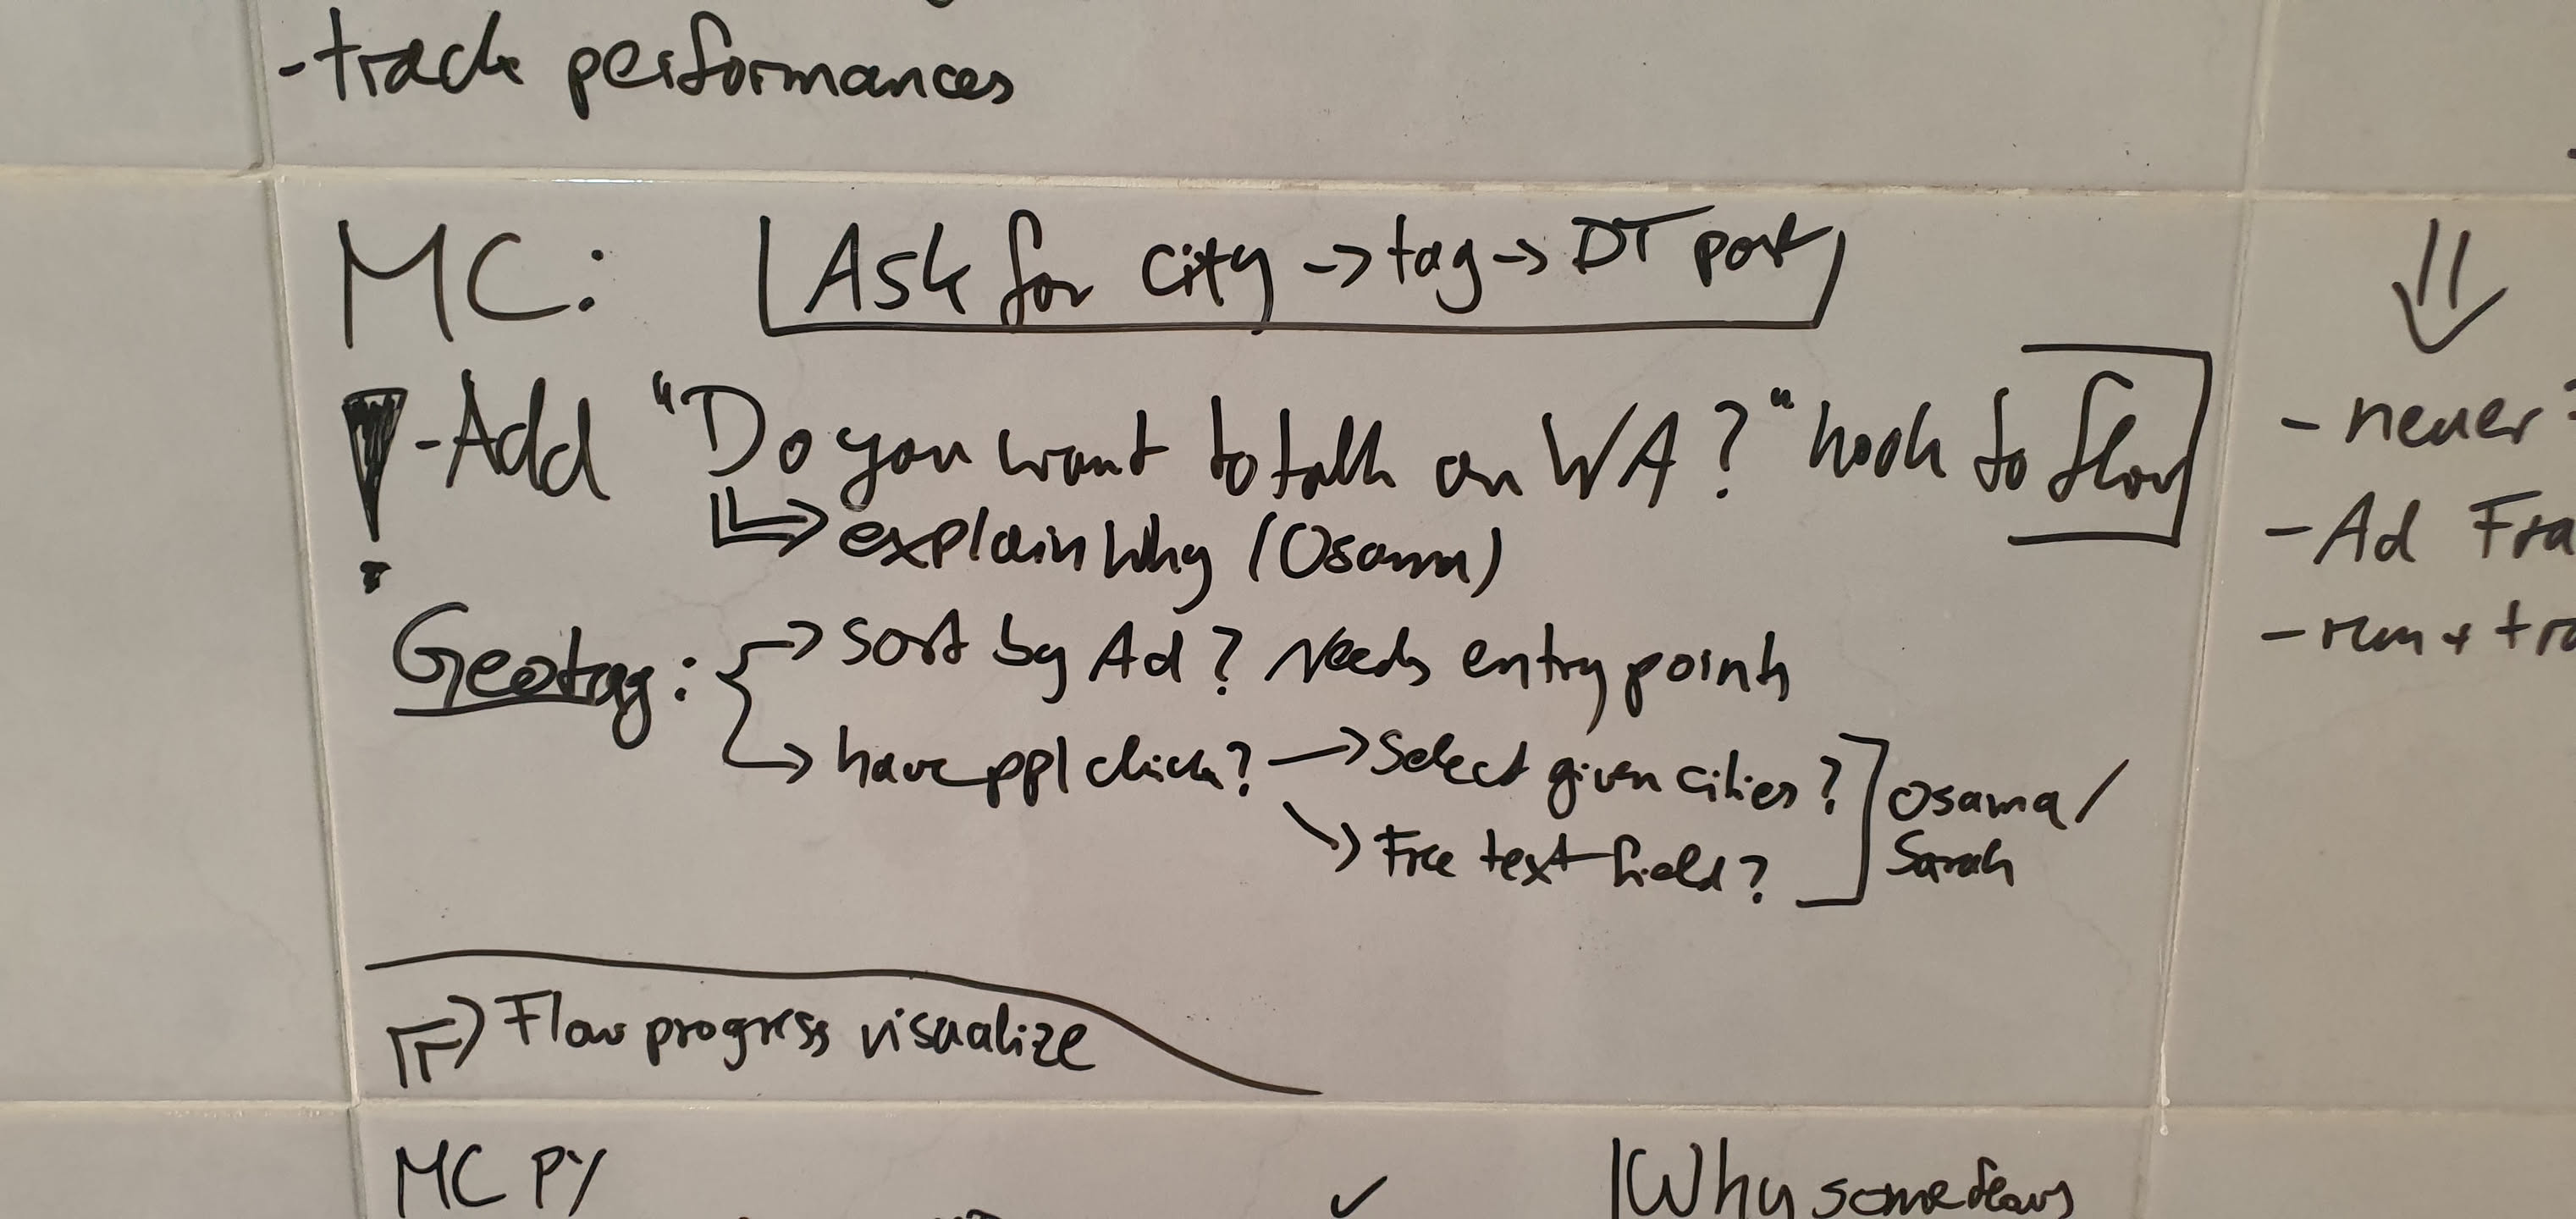 - track performances
MC: Ask for city -> tag -> DT port
- Add "Do you want to talk on WA?" hook to flow
=> explain Why (Osama)
Geotag: -> sort by Ad? Needs entry points
-> have ppl click? -> Select given cities?
-> Free text field?
Osama/
Sarah
=> Flow progress visualize
MC PY ✓
Why some flows
- never
- Ad Fra
- run + tra